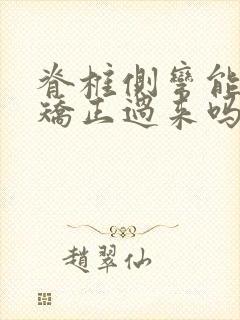 脊柱侧弯能
矫正过来吗
趙翠仙